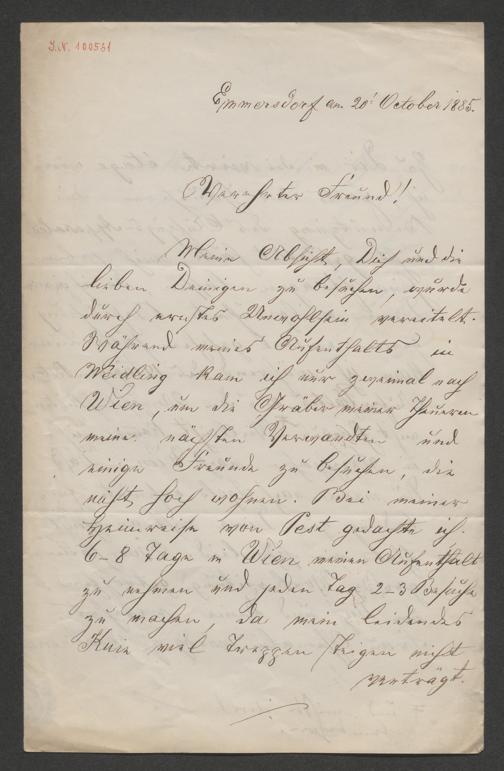 I.N. 100531
Emmersdorf am 20t October 1885.
Verehrter Freund!
Meine Absicht, Dich und die
lieben Deinigen zu besuchen, wurde
durch ernstes Unwohlsein vereitelt.
Während meines Aufenthalts in
Meidling kam ich nur zweimal nach
Wien, um die Gräber meiner Theueren
meine nächsten Verwandten und
einige Freunde zu besuchen, die
nicht hoch wohnen. Bei meiner
Heimreise von Pest gedachte ich
6-8 Tage in Wien meinen Aufenthalt
zu nehmen und jeden Tag 2-3 Besuche
zu machen, da mein leidendes
Knie viel Treppen steigen nicht
verträgt.